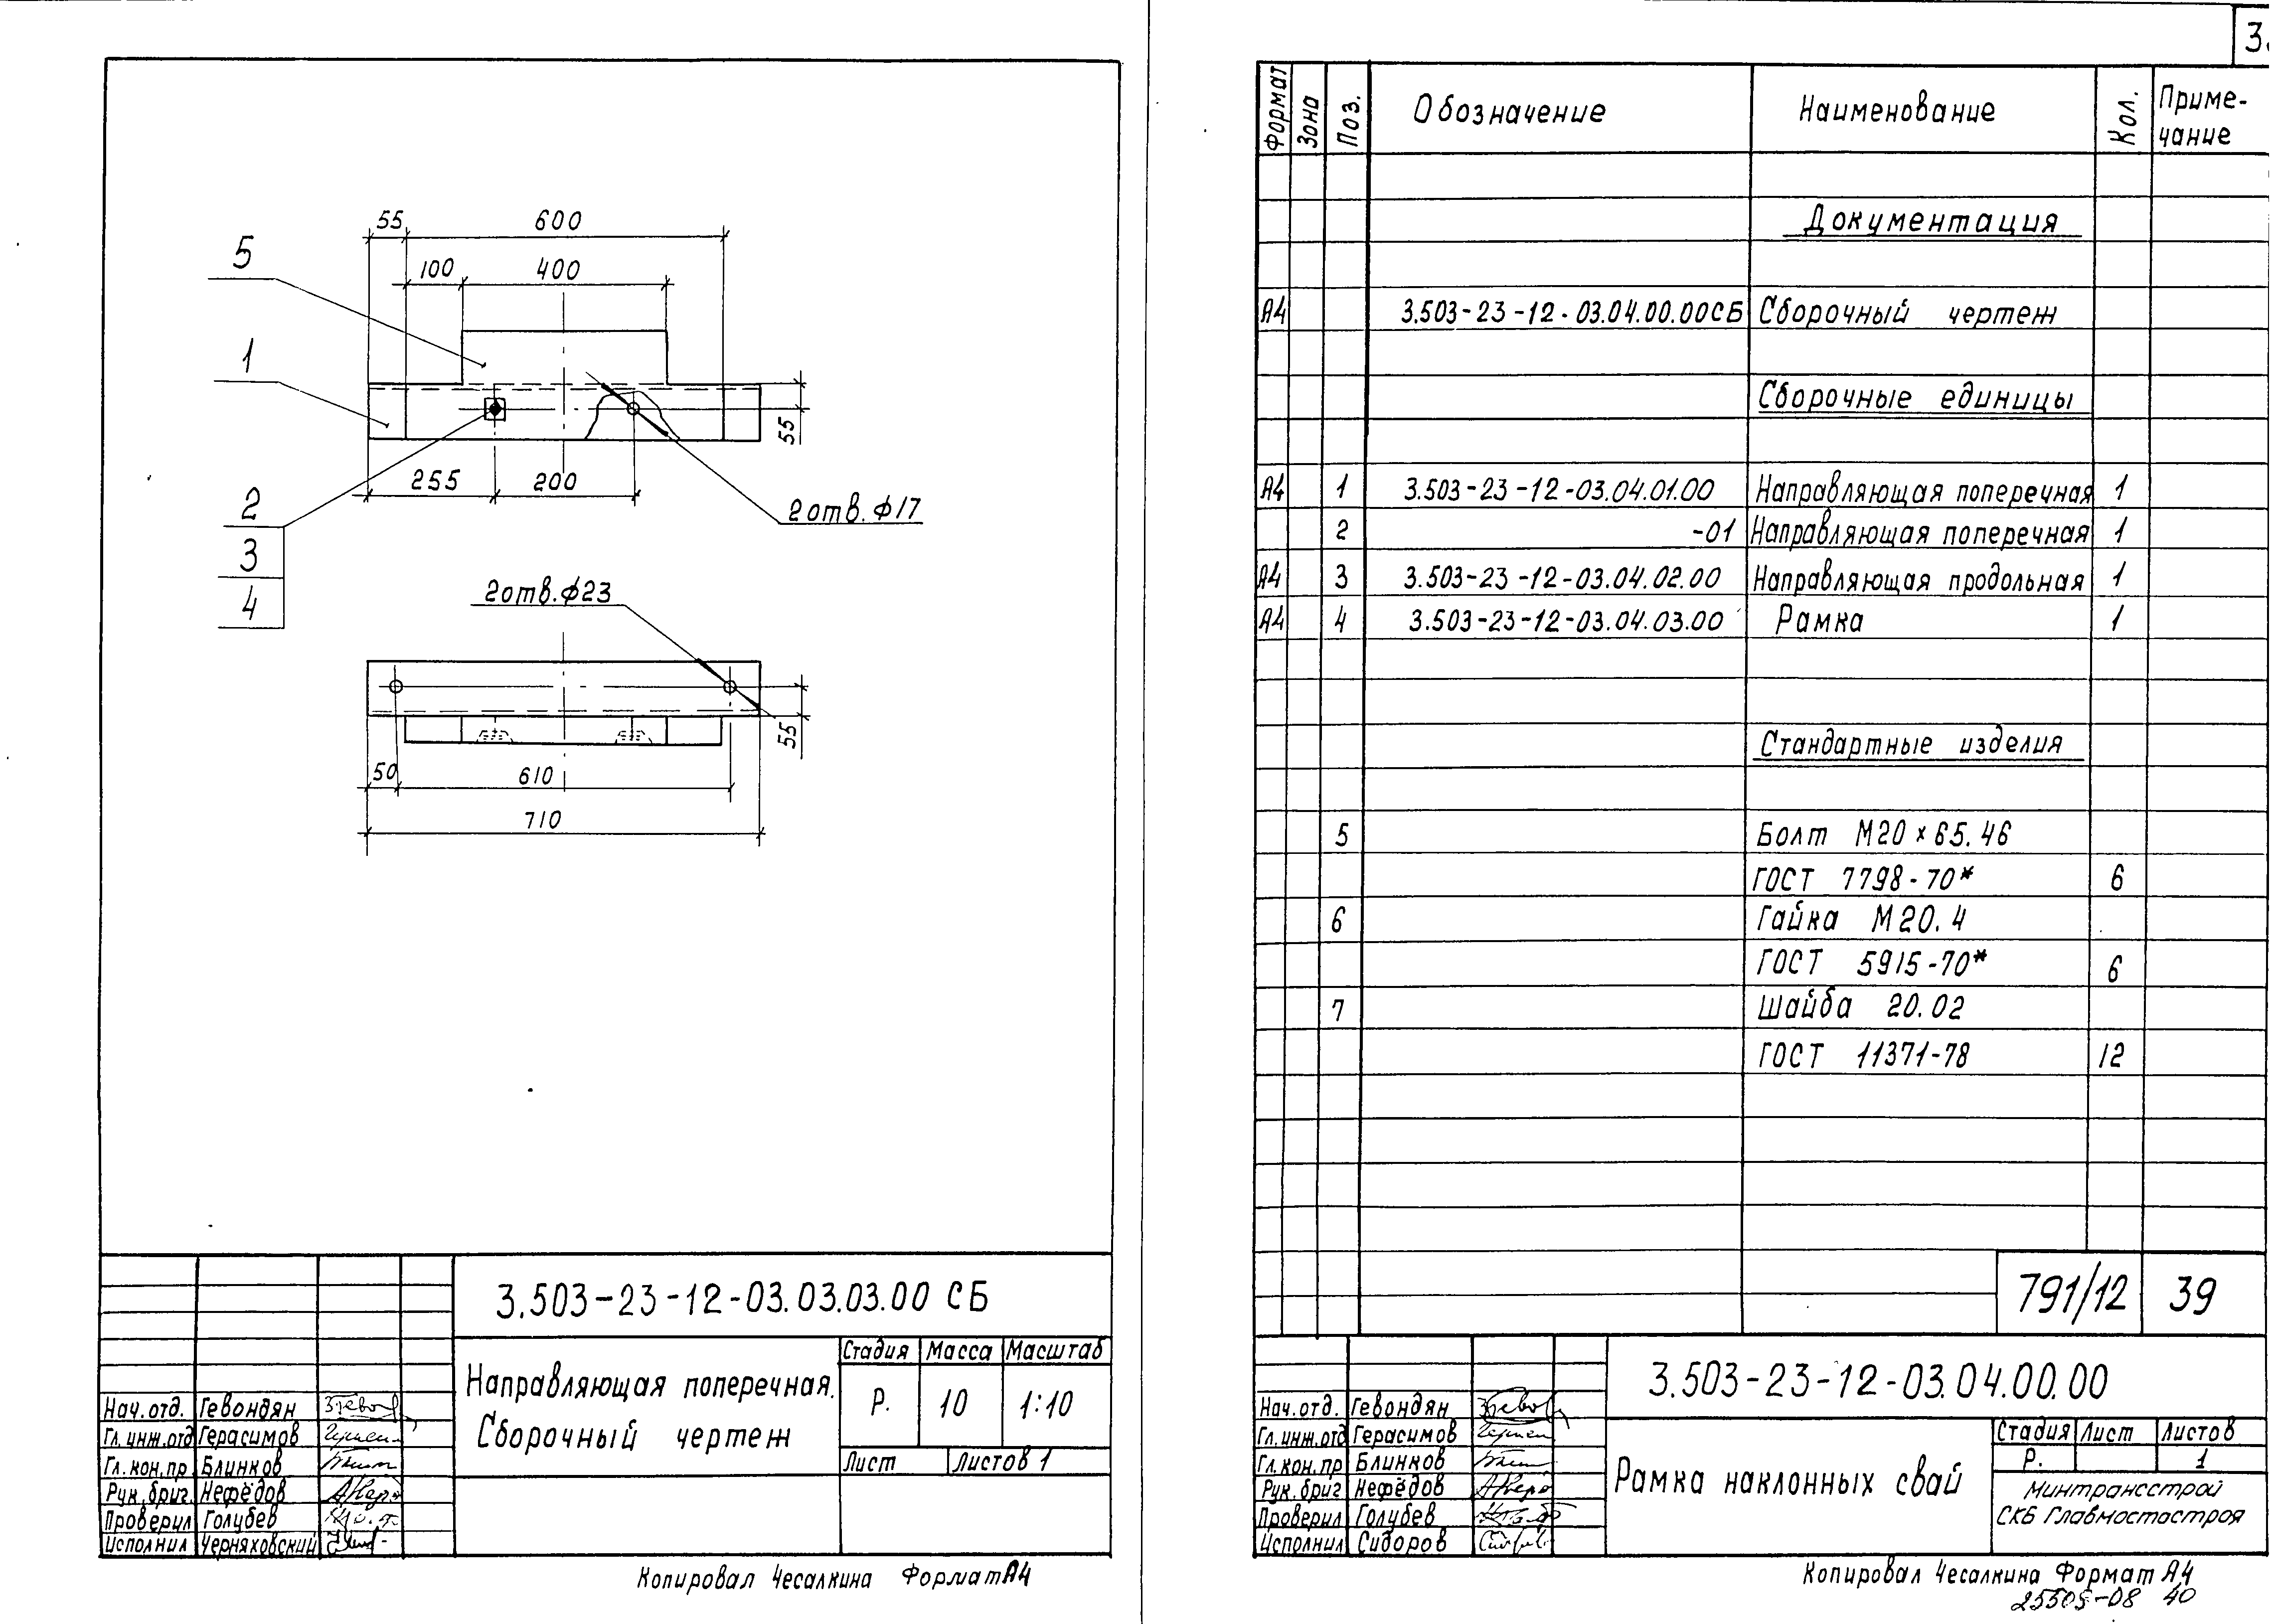 55
600
5
100
400
1
55
255
200
2
3
4
2отв.ф17
2отв.ф23
55
50
610
710
3.503-23-12-03.03.03.00 СБ
Направляющая поперечная.
Сборочный чертеж
Стадия Масса Масштаб
Р. 10 1:10
Лист Листов 1
Нач.отд. Гевондян
Гл.инж.отд Герасимов
Гл.кон.пр. Блинков
Рук.бриг. Нефёдов
Проверил Голубев
Исполнил Черняховский
Копировал Чесалкина Формат А4
3.
Формат Зона Поз. Обозначение Наименование Кол. Приме-
чание
Документация
А4 3.503-23-12-03.04.00.00СБ Сборочный чертеж
Сборочные единицы
А4 1 3.503-23-12-03.04.01.00 Направляющая поперечная 1
2 -01 Направляющая поперечная 1
А4 3 3.503-23-12-03.04.02.00 Направляющая продольная 1
А4 4 3.503-23-12-03.04.03.00 Рамка 1
Стандартные изделия
5 Болт М20×65.46
ГОСТ 7798-70* 6
6 Гайка М20.4
ГОСТ 5915-70* 6
7 Шайба 20.02
ГОСТ 11371-78 12
791/12 39
3.503-23-12-03.04.00.00
Рамка наклонных свай
Стадия Лист Листов
Р. 1
Минтрансстрой
СКБ Главмостостроя
Нач.отд. Гевондян
Гл.инж.отд Герасимов
Гл.кон.пр Блинков
Рук.бриг Нефёдов
Проверил Голубев
Исполнил Сидоров
Копировал Чесалкина Формат А4
25505-08 40